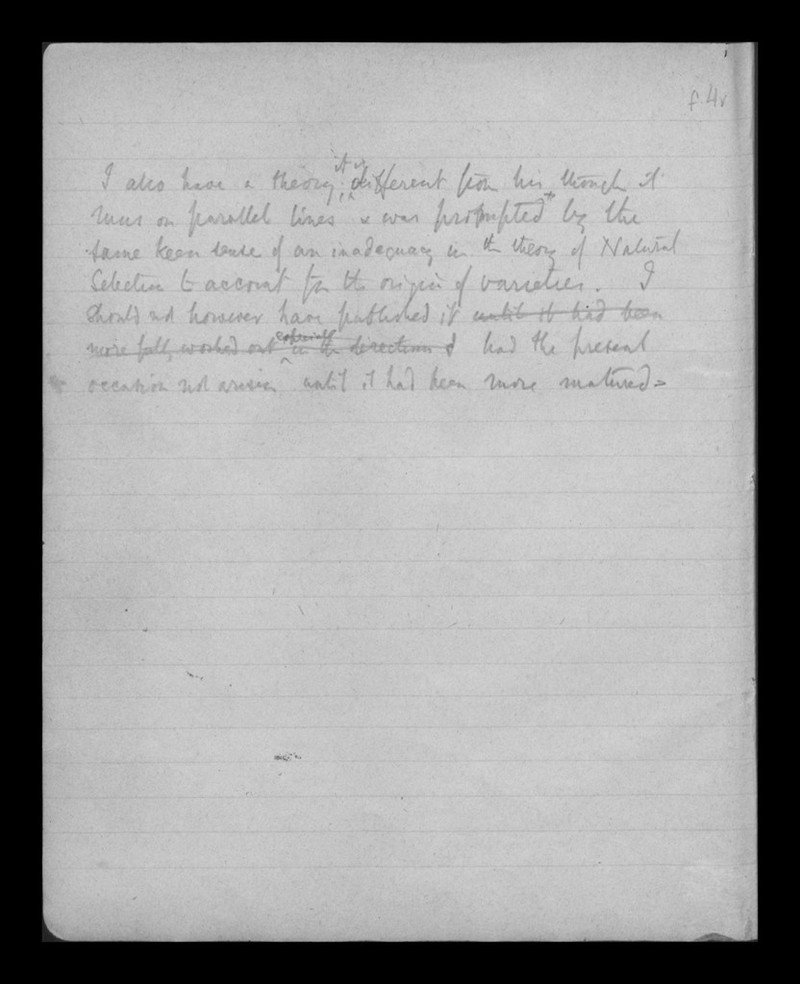 f. 4v
I also have a theory; it is different from his, though it
runs on parallel lines & was prompted by the
same keen sense of an inadequacy in the theory of Natural
Selection to account for the origin of varieties. I
should not however have published it until it had been
more fully worked out especially in the direction of had the present
occasion not arisen until it had been more matured=